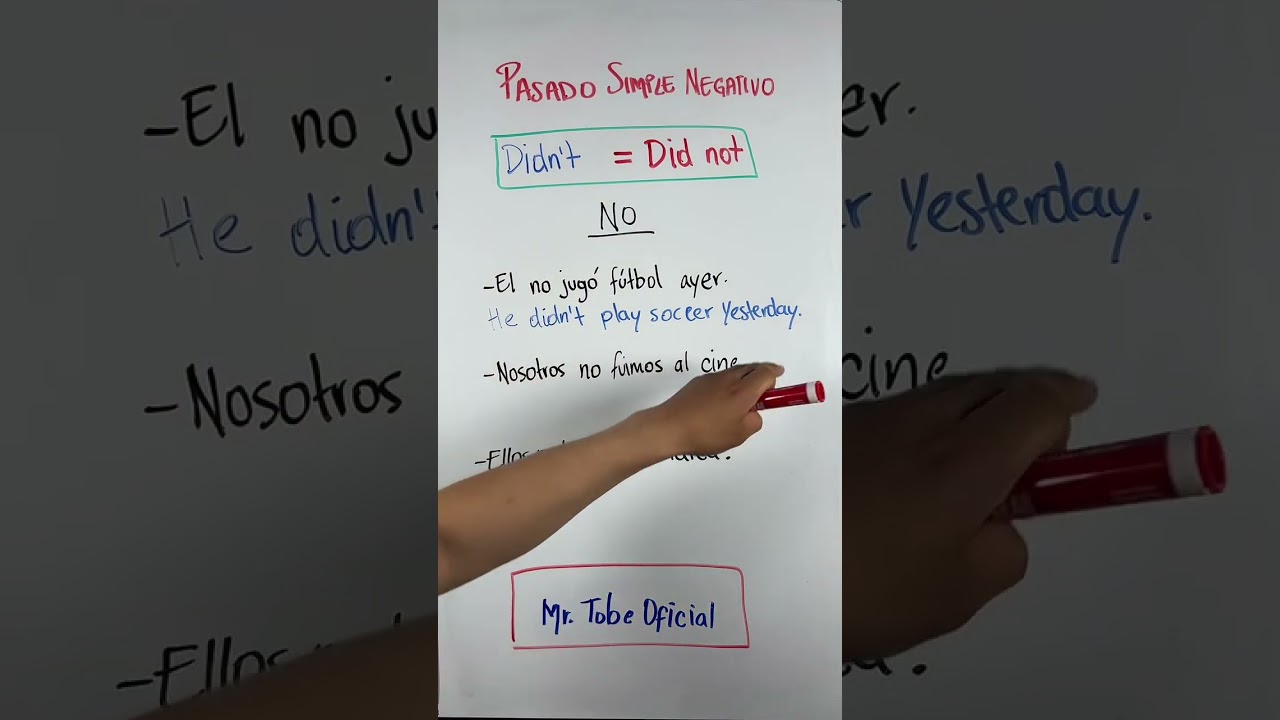 PASADO SIMPLE NEGATIVO
Didn't = Did not
NO
-El no jugó fútbol ayer.
He didn't play soccer yesterday.
-Nosotros no fuimos al cine
-Ellos
Mr. Tobe Oficial